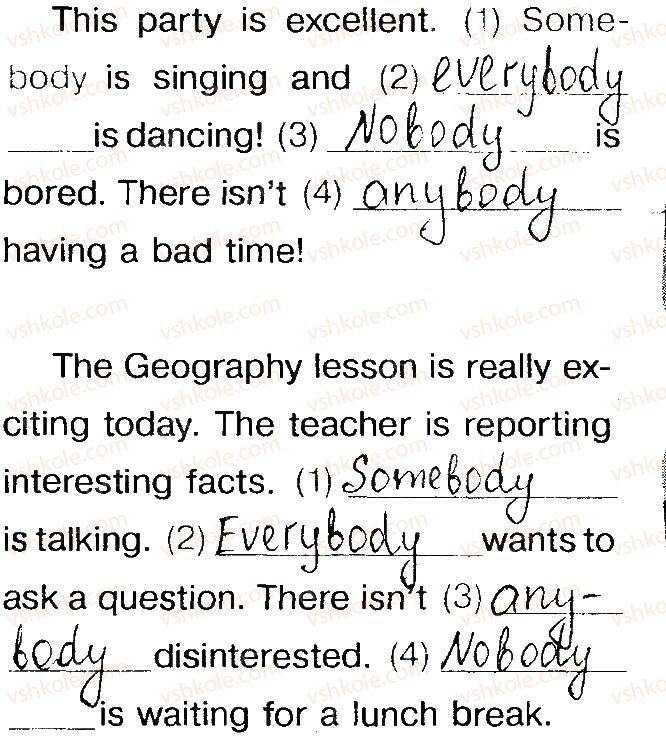 This party is excellent. (1) Some-
body is singing and (2) everybody
is dancing! (3) Nobody is
bored. There isn't (4) anybody
having a bad time!
The Geography lesson is really ex-
citing today. The teacher is reporting
interesting facts. (1) Somebody
is talking. (2) Everybody wants to
ask a question. There isn't (3) any-
body disinterested. (4) Nobody
is waiting for a lunch break.
vshkole.com